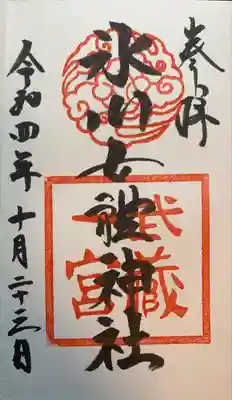 奉拝
氷川女體神社
武藏
一宮
令和四年十月二十三日